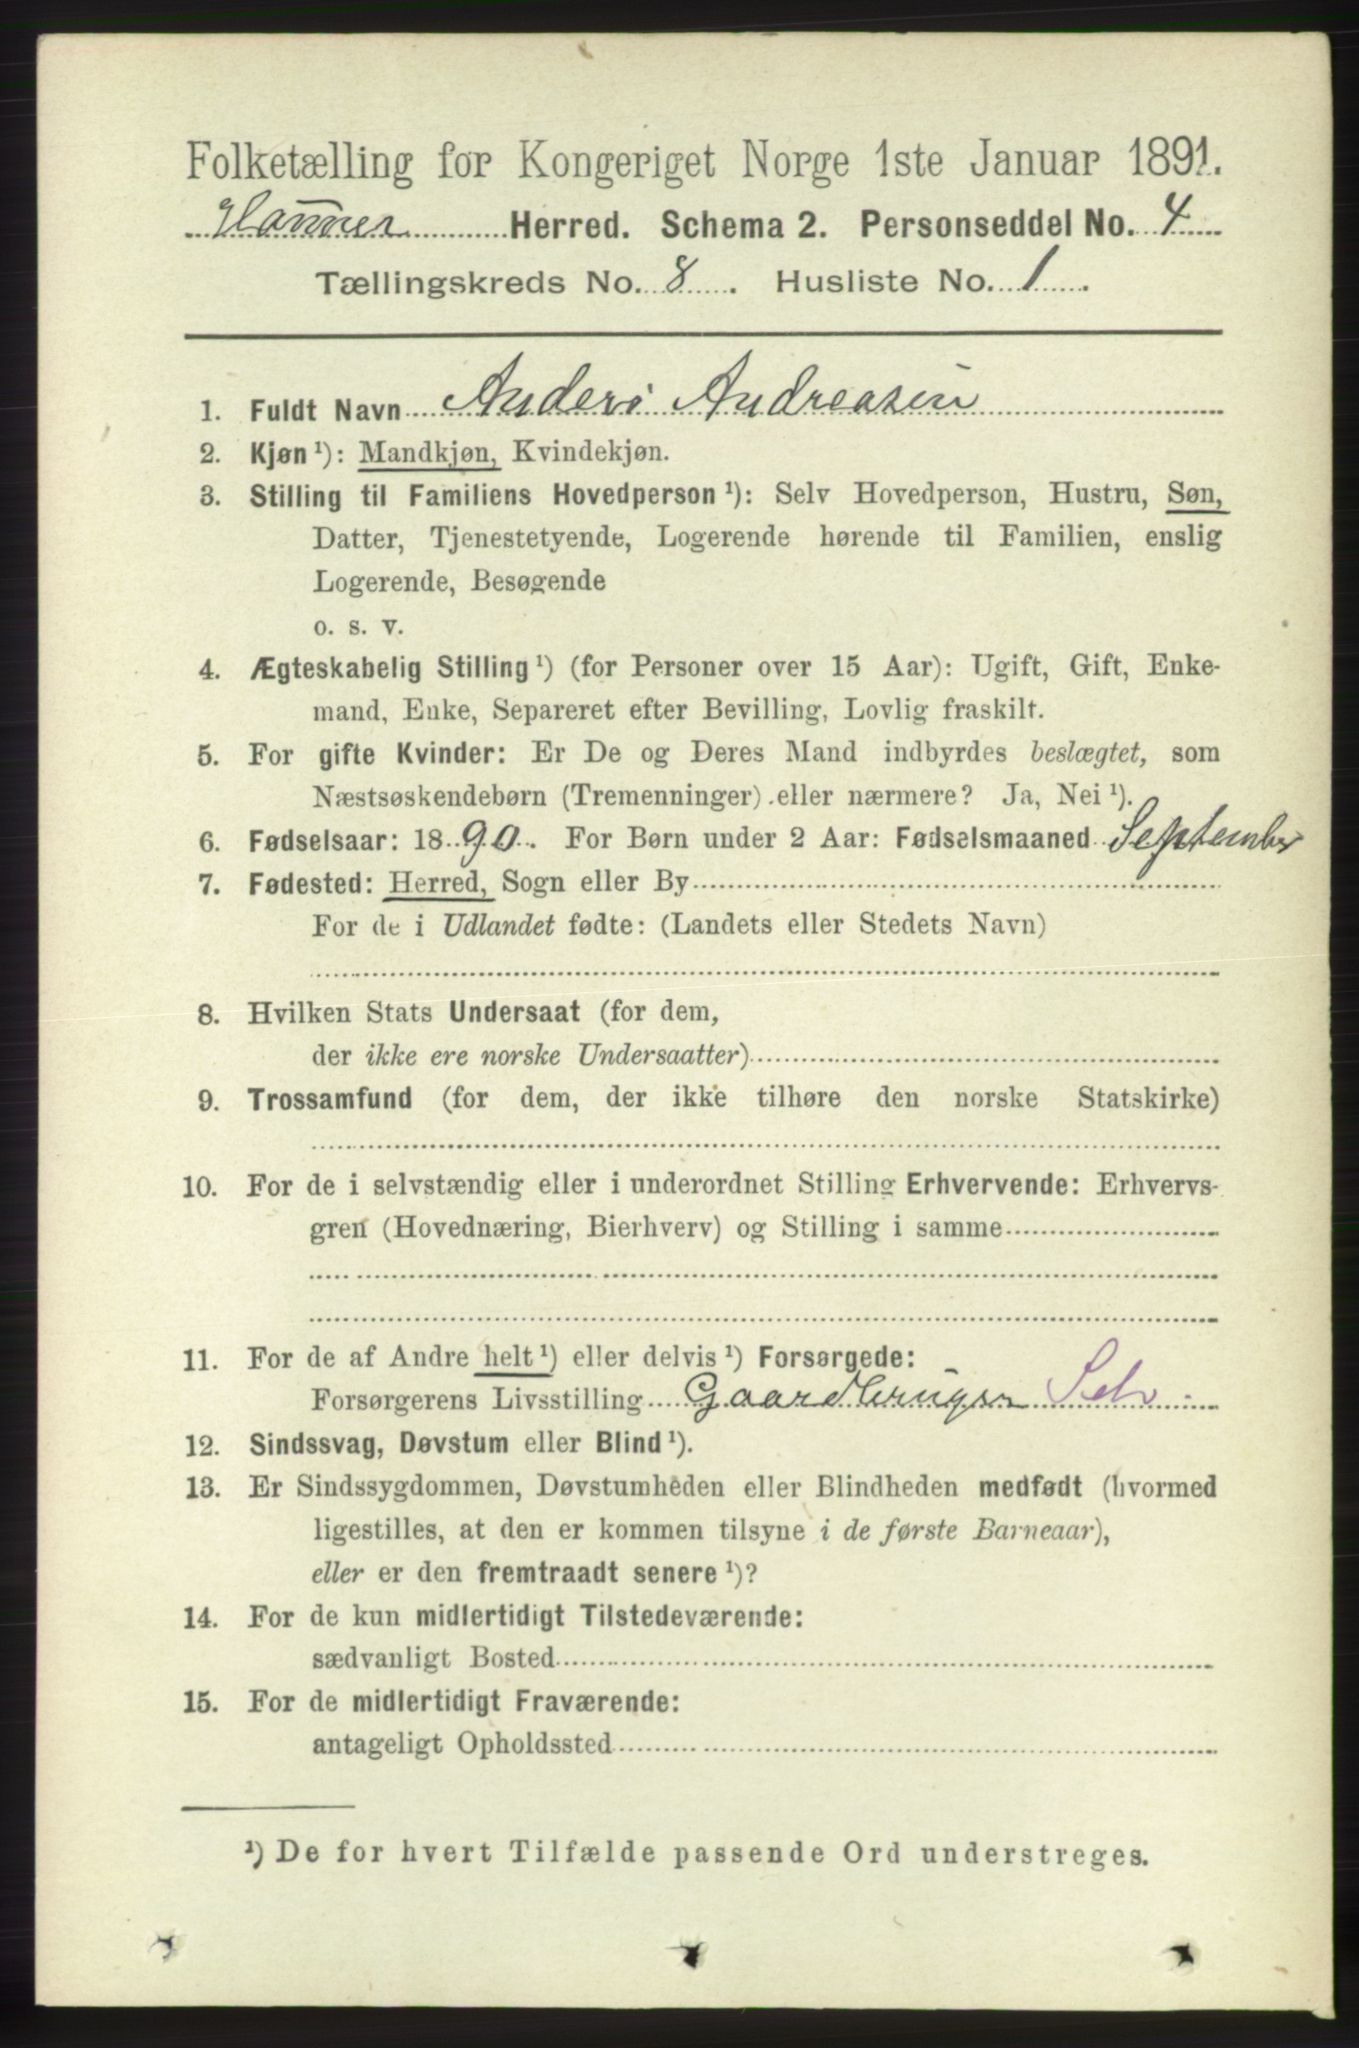 Folketælling for Kongeriget Norge 1ste Januar 1891.
Hammer Herred. Schema 2. Personseddel No. 4
Tællingskreds No. 8. Husliste No. 1.
1. Fuldt Navn Anders Andreasen
2. Kjøn ¹): Mandkjøn, Kvindekjøn.
3. Stilling til Familiens Hovedperson ¹): Selv Hovedperson, Hustru, Søn,
Datter, Tjenestetyende, Logerende hørende til Familien, enslig
Logerende, Besøgende
o. s. v.
4. Ægteskabelig Stilling ¹) (for Personer over 15 Aar): Ugift, Gift, Enke-
mand, Enke, Separeret efter Bevilling, Lovlig fraskilt.
5. For gifte Kvinder: Er De og Deres Mand indbyrdes beslægtet, som
Næstsøskendebørn (Tremenninger) eller nærmere? Ja, Nei ¹).
6. Fødselsaar: 1890. For Børn under 2 Aar: Fødselsmaaned September
7. Fødested: Herred, Sogn eller By
For de i Udlandet fødte: (Landets eller Stedets Navn)
8. Hvilken Stats Undersaat (for dem,
der ikke ere norske Undersaatter)
9. Trossamfund (for dem, der ikke tilhøre den norske Statskirke)
10. For de i selvstændig eller i underordnet Stilling Erhvervende: Erhvervs-
gren (Hovednæring, Bierhverv) og Stilling i samme
11. For de af Andre helt ¹) eller delvis ¹) Forsørgede:
Forsørgerens Livsstilling Gaardbruger Selv.
12. Sindssvag, Døvstum eller Blind ¹).
13. Er Sindssygdommen, Døvstumheden eller Blindheden medfødt (hvormed
ligestilles, at den er kommen tilsyne i de første Barneaar),
eller er den fremtraadt senere ¹)?
14. For de kun midlertidigt Tilstedeværende:
sædvanligt Bosted
15. For de midlertidigt Fraværende:
antageligt Opholdssted
¹) De for hvert Tilfælde passende Ord understreges.